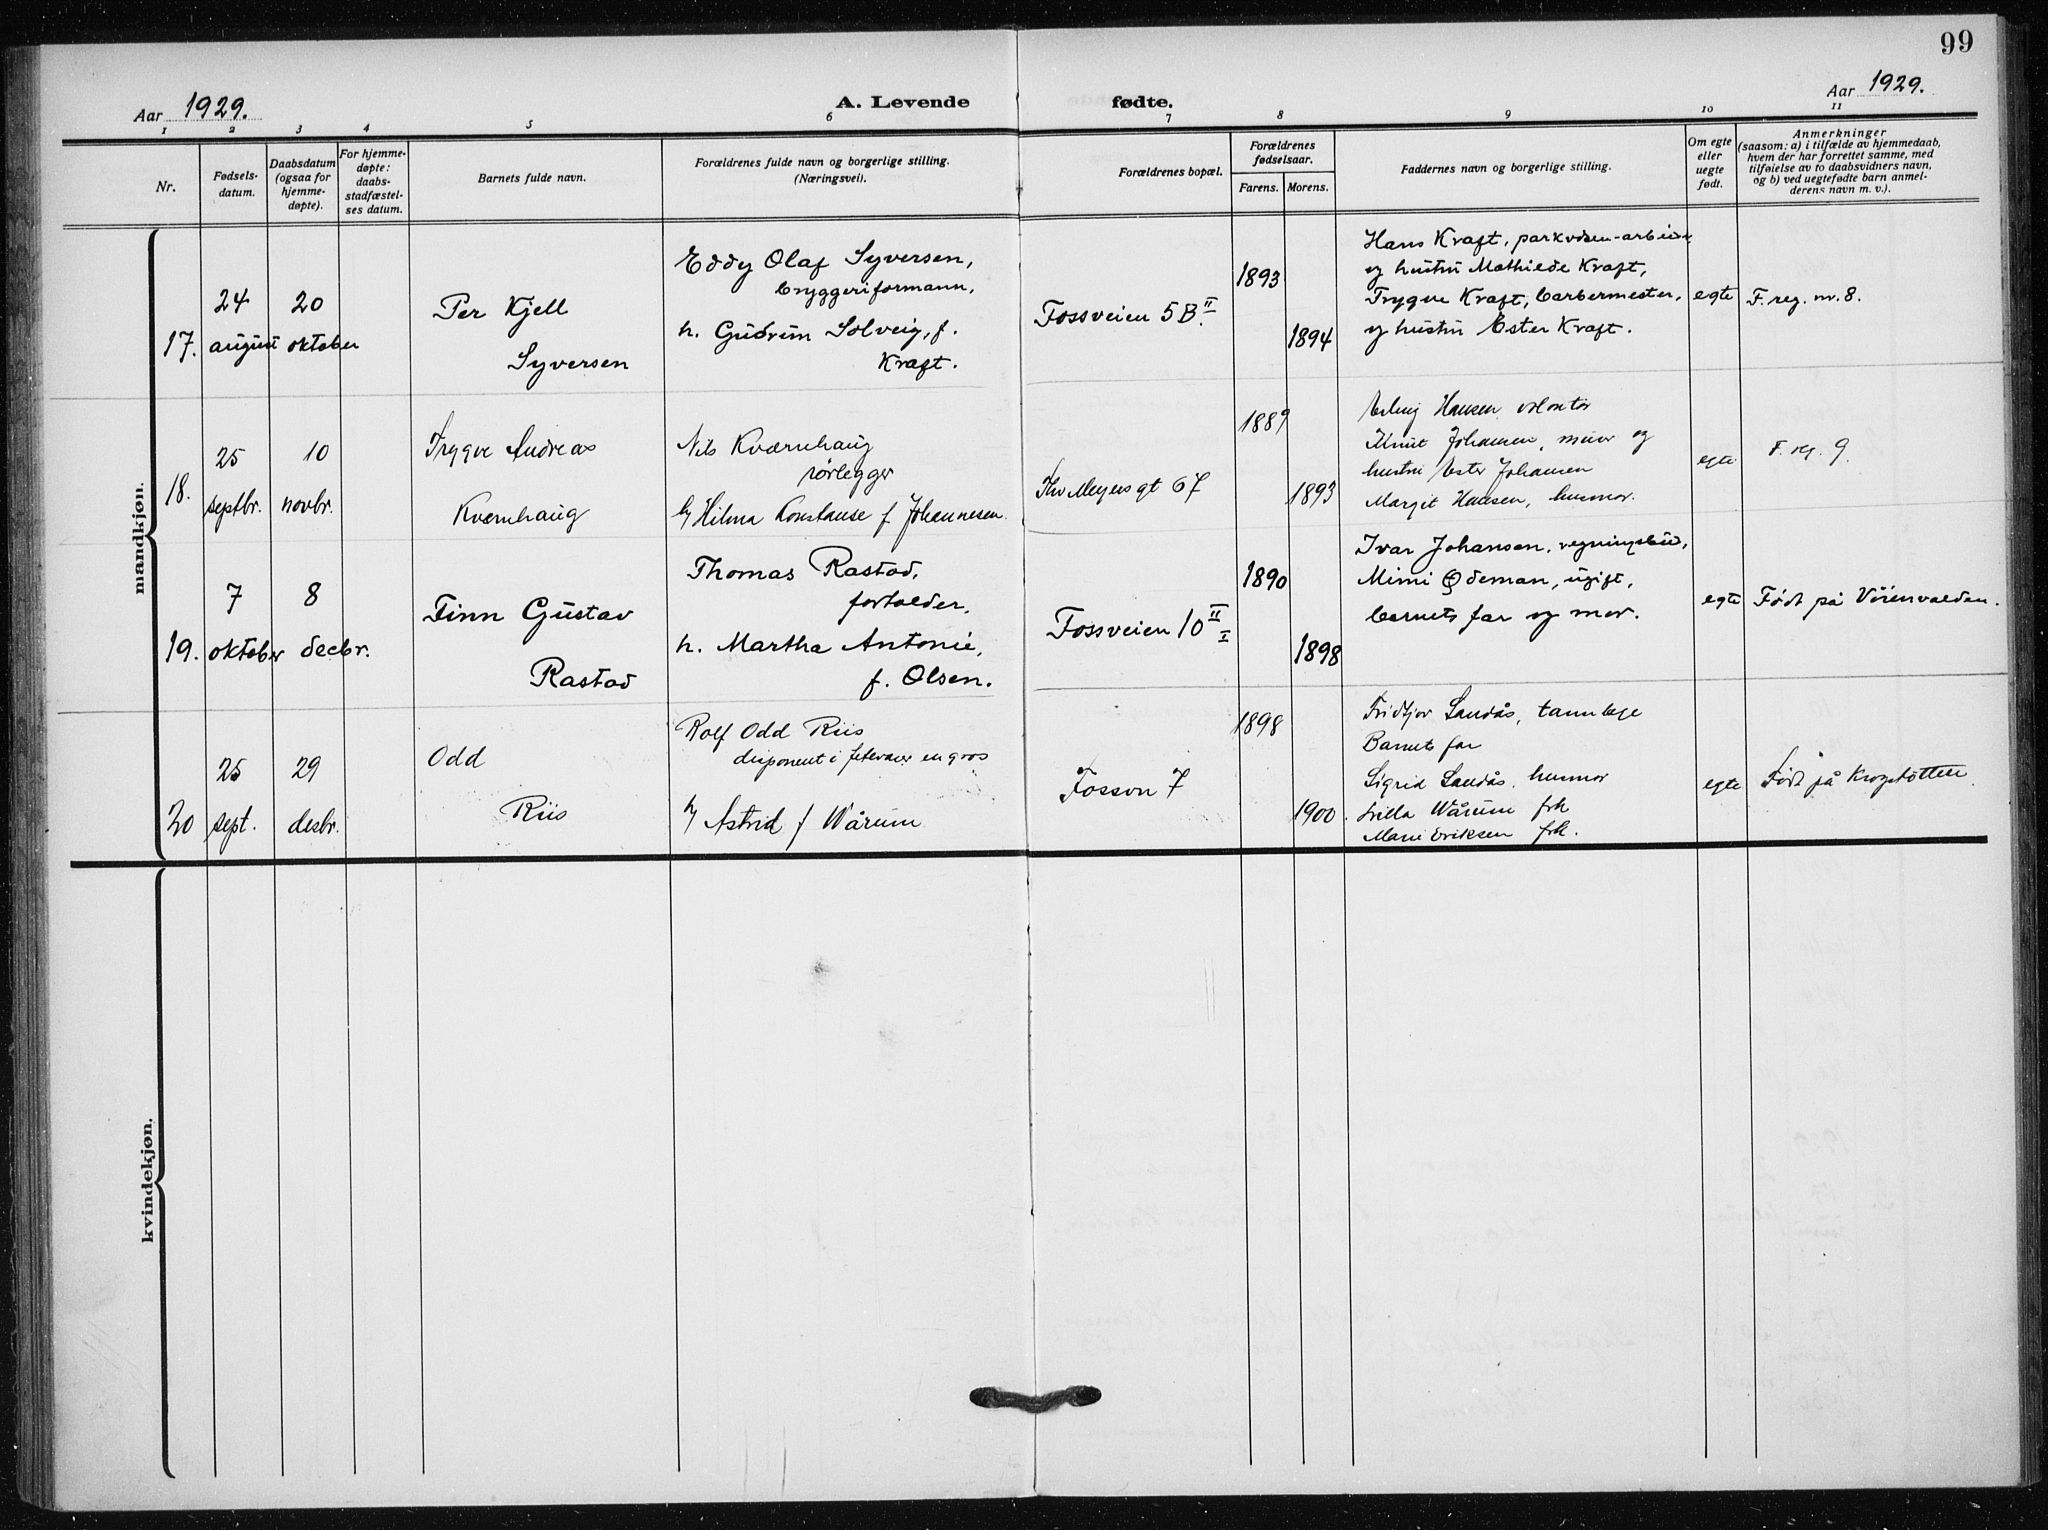 99
Aar 1929.
A. Levende fødte.
Aar 1929.
1 2 3 4 5 6 7 8 9 10 11
Nr.
Fødsels-
datum.
Daabsdatum
(ogsaa for
hjemme-
døpte).
For hjemme-
døpte:
daabs-
stadfæstel-
ses datum.
Barnets fulde navn.
Forældrenes fulde navn og borgerlige stilling.
(Næringsvei).
Forældrenes bopæl.
Forældrenes
fødselsaar.
Farens. Morens.
Faddernes navn og borgerlige stilling.
Om egte
eller
uegte
født.
Anmerkninger
(saasom: a) i tilfælde av hjemmedaab,
hvem der har forrettet samme, med
tilføielse av to daabsvidners navn,
og b) ved uegtefødte barn anmel-
derens navn m. v.).
mandkjøn.
17.
24
august
20
oktober
Per Kjell
Syversen
Eddy Olaf Syversen,
bryggeriformann,
h. Gudrun Solveig, f.
Kraft.
Fossveien 5B. II
1893
1894
Hans Kraft, parkvesen-arbeid.
og hustru Mathilde Kraft,
Trygve Kraft, barbermester,
og hustru Ester Kraft.
egte
F. reg. nr. 8.
18.
25
septbr.
10
novbr.
Trygve Andreas
Kværnhaug
Nils Kværnhaug
rørlegger
h/ Hilma Konstanse f. Johannesen.
Thv Meyers gt 67
1889
1893
Erling Hansen volontør
Knut Johansen, murer og
hustru Ester Johansen
Margit Hansen, husmor.
egte
F. reg. 9.
19.
7
oktober
8
decbr.
Finn Gustav
Rastad
Thomas Rastad,
forvalder,
h. Martha Antonie,
f. Olsen.
Fossveien 10 II I
1890
1898
Ivar Johansen, regningsbud,
Mimi Ødeman, ugift,
barnets far og mor.
egte
Født på Vøienvolden.
20
25
sept.
29
desbr.
Odd
Riis
Rolf Odd Riis
disponent i fetevarer en gros
h/ Astrid f Wårum
Fossvn 7
1898
1900.
Fridtjov Sandås, tannlege
Barnets far
Sigrid Sandås, husmor
Lilla Wårum frk
Marie Eriksen frk.
egte
Født på Krogstøtten
kvindekjøn.